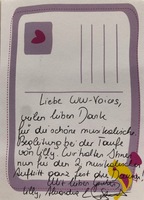 Liebe WW-Voices,
vielen lieben Dank
für die schöne musikalische
Begleitung bei der Taufe
von Ully. Wir halten Ihnen
nun für den 2. musikalischen
Auftritt ganz fest die Daumen!
Mit lieben Grüßen
Ully, Alexandra